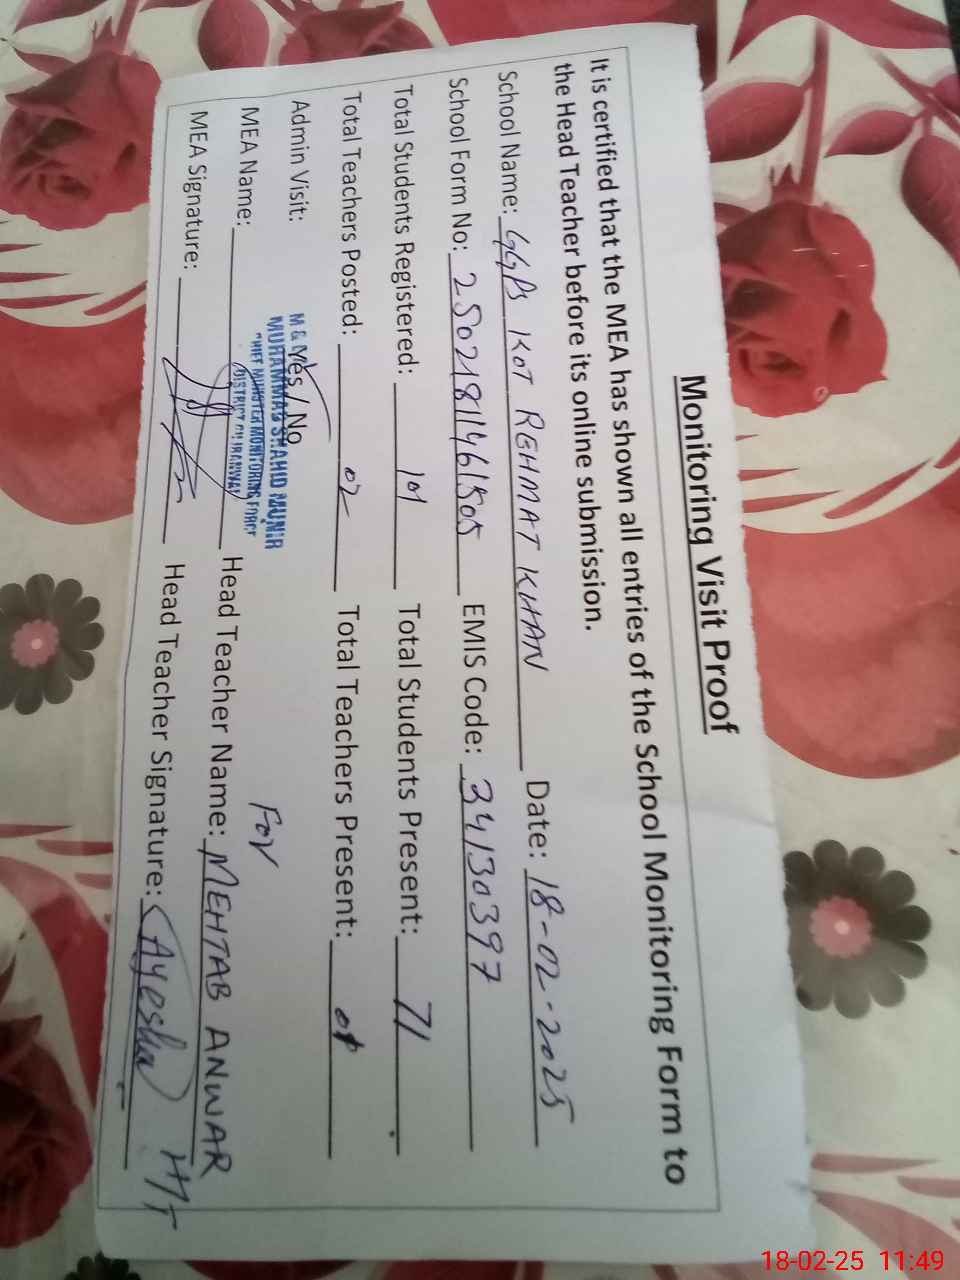 Monitoring Visit Proof
It is certified that the MEA has shown all entries of the School Monitoring Form to
the Head Teacher before its online submission.
School Name: GGPS KOT REHMAT KHAN Date: 18-02-2025
School Form No: 2502181461505 EMIS Code: 34130397
Total Students Registered: 101 Total Students Present: 71
Total Teachers Posted: 02 Total Teachers Present: 01
Admin Visit: Yes / No
M &
MUHAMMAD SHAHID MUNIR
CHIEF MINISTER MONITORING FORCE
DISTRICT
For
MEA Name: Head Teacher Name: MEHTAB ANWAR
MEA Signature: Head Teacher Signature: Ayesha
18-02-25 11:49